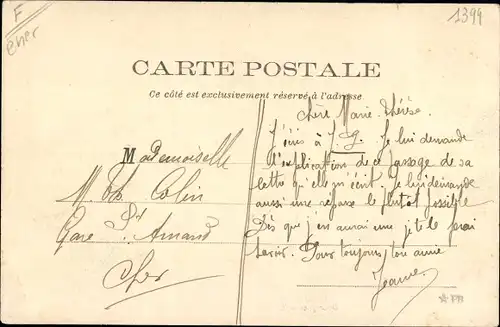 F
Cher
1399
CARTE POSTALE
Ce côté est exclusivement réservé à l'adresse
Mademoiselle
M. Th. Colin
Gare St Amand
Cher
Chère Marie-Thérèse
J'écris à J. G. Je lui demande
l'explication de ce passage de sa
lettre qu'elle m'écrit. Je lui demande
aussi une réponse le plutôt possible
Dès que j'en aurai une je te le ferai
savoir. Pour toujours ton amie
Jeanne
PB